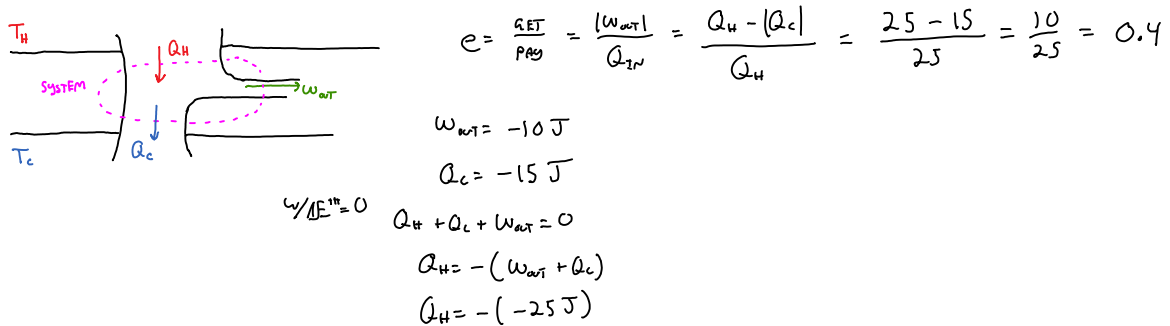 T_H
Q_H
SYSTEM
W_OUT
T_C
Q_C
e = GET/PAY = |W_OUT|/Q_IN = (Q_H - |Q_C|)/Q_H = (25 - 15)/25 = 10/25 = 0.4
W_OUT = -10 J
Q_C = -15 J
w/ΔE^TH = 0
Q_H + Q_C + W_OUT = 0
Q_H = -(W_OUT + Q_C)
Q_H = -(-25 J)